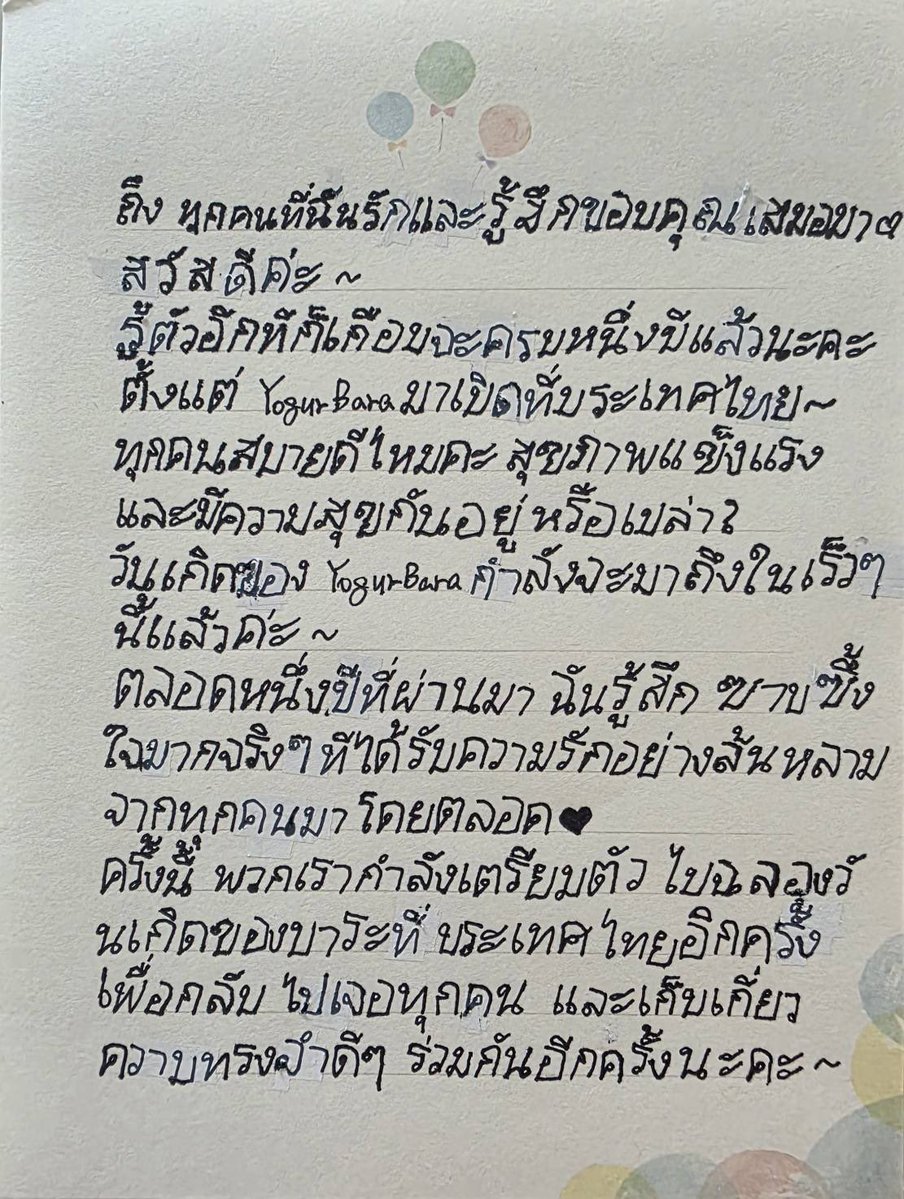 ถึง ทุกคนที่ฉันรักและรู้สึกขอบคุณเสมอมา♡
สวัสดีค่ะ ~
รู้ตัวอีกทีก็เกือบจะครบหนึ่งปีแล้วนะคะ
ตั้งแต่ YogurBara มาเปิดที่ประเทศไทย~
ทุกคนสบายดีไหมคะ สุขภาพแข็งแรง
และมีความสุขกันอยู่หรือเปล่า?
วันเกิดของ YogurBara กำลังจะมาถึงในเร็วๆ
นี้แล้วค่ะ ~
ตลอดหนึ่งปีที่ผ่านมา ฉันรู้สึก ซาบซึ้ง
ใจมากจริงๆ ที่ได้รับความรักอย่างล้นหลาม
จากทุกคนมาโดยตลอด♥
ครั้งนี้ พวกเรากำลังเตรียมตัว ไปฉลองวั
นเกิดของบาระที่ ประเทศไทยอีกครั้ง
เพื่อกลับไปเจอทุกคน และเก็บเกี่ยว
ความทรงจำดีๆ ร่วมกันอีกครั้งนะคะ ~